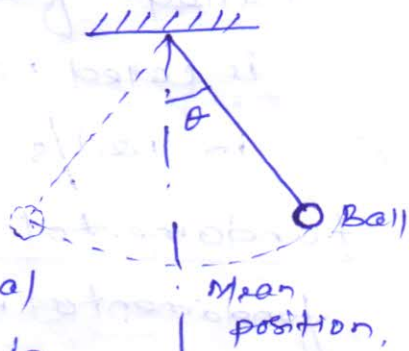 θ
Ball
al
Mean
position.